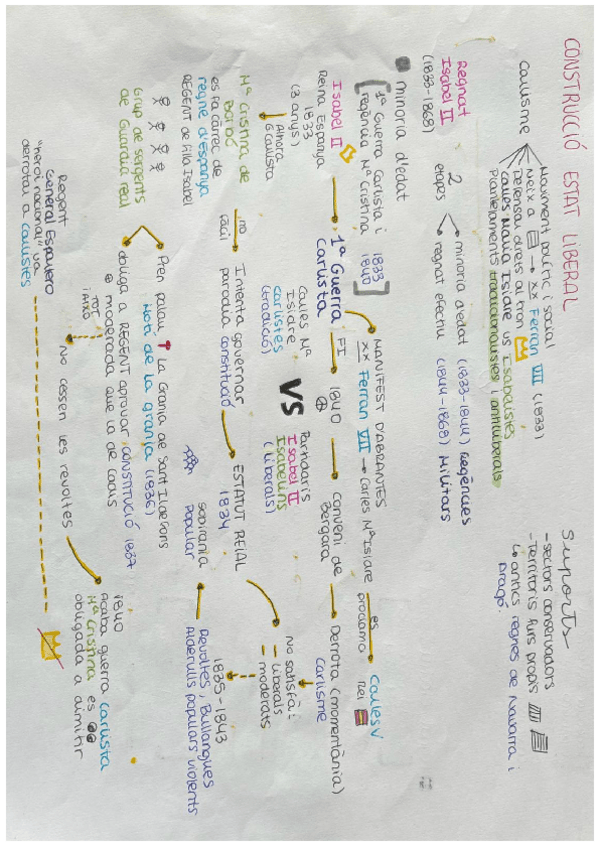 CONSTRUCCIÓ ESTAT LIBERAL
Carlisme
Moviment polític i social
Neix a → xx Ferran VII (1833)
Defensa drets al tron
Carles Maria Isidre vs Isabelistes
Plantejaments tradicionalistes i antiliberals
Suports
- sectors conservadors
- Territoris furs propis
↳ antics regnes de Navarra i
Aragó.
Regnat
Isabel II
(1833-1868)
2
etapes
minoria d'edat (1833-1844) Regències
regnat efectiu (1844-1868) Militars
minoria d'edat
1ª Guerra Carlista i
regència Mª Cristina
1833
1840
MANIFEST D'ABRANTES
xx Ferran VII → Carles Mª Isidre
es
proclama
Carles V
rei
Isabel II
Reina Espanya
1833
(3 anys)
1ª Guerra
Carlista
FI
1840
Conveni de
Bergara
Derrota (momentània)
Carlisme
Carles Mª
Isidre
carlistes
(tradició)
VS
Partidaris
Isabel II
Isabelins
(liberals)
Mª Cristina de
Borbó
es fa càrrec de
regne d'Espanya
REGENT de filla Isabel
no
fàcil
Intenta governar
parodia constitució
ESTATUT REIAL
1834
No satisfà:
- liberals
- moderats
1835-1843
Revoltes, Bullangues
Aldarulls populars violents
sobirania
Popular
Grup de sargents
de Guardia real
Pren palau La Granja de Sant Ildefons
Motí de la granja (1836)
obliga a REGENT aprovar CONSTITUCIÓ 1837
moderada que la de Cadis
TOT
I AIXÒ
No cessen les revoltes
1840
Acaba guerra carlista
Mª Cristina es
obligada a dimitir
Regent
General Espartero
"heroi nacional" va
derrotar a carlistes